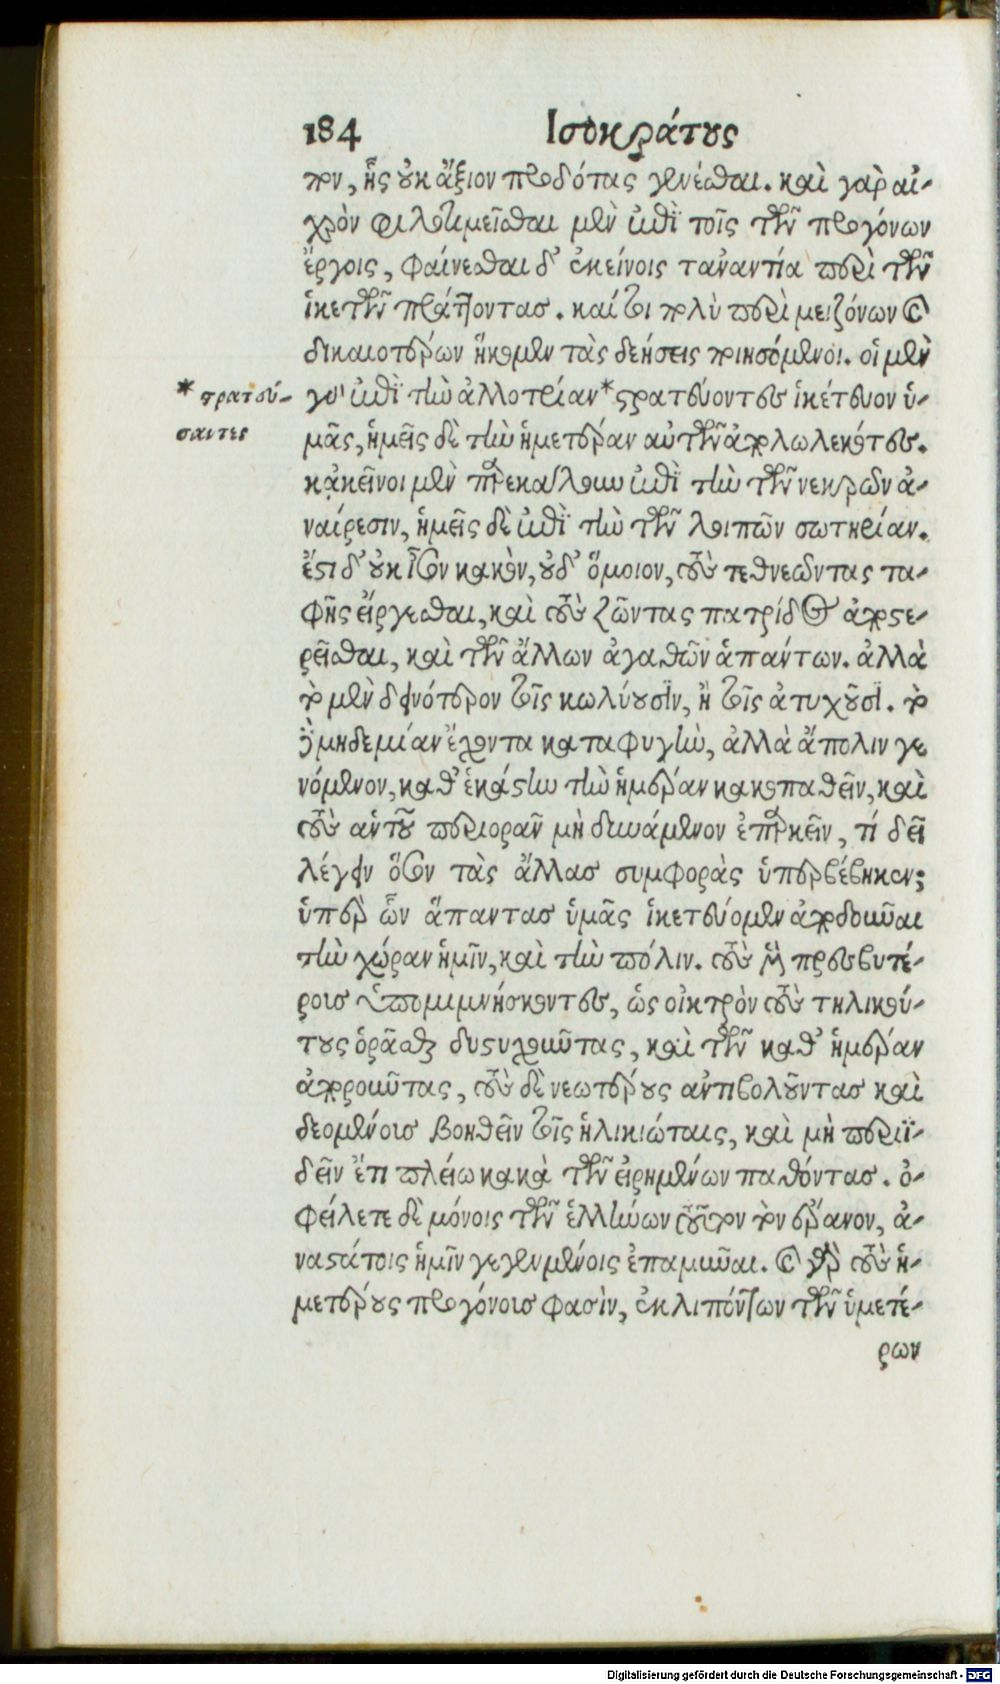 184 Ισοκράτους
τον, ἧς οὐκ ἄξιον προδότας γενέσθαι. καὶ γὰρ αἰ-
χρὸν φιλοτιμεῖσθαι μὲν ἐπὶ τοῖς τῶν προγόνων
ἔργοις, φαίνεσθαι δ' ἐκείνοις τἀναντία περὶ τῶν
ἱκετῶν πράττοντας. καίτοι πολὺ περὶ μειζόνων καὶ
δικαιοτέρων ἥκομεν τὰς δεήσεις ποιησόμενοι. οἱ μὲν
* στρατεύ- γὰρ ἐπὶ τὴν ἀλλοτρίαν* στρατεύοντες ἱκέτευον ὑ-
σαντες
μᾶς, ἡμεῖς δὲ τὴν ἡμετέραν αὐτῶν ἀπολωλεκότες.
κἀκεῖνοι μὲν παρεκάλουν ἐπὶ τὴν τῶν νεκρῶν ἀ-
ναίρεσιν, ἡμεῖς δὲ ἐπὶ τὴν τῶν λοιπῶν σωτηρίαν.
ἔστι δ' οὐκ ἶσον κακὸν, οὐδ' ὅμοιον, τοὺς τεθνεῶντας τα-
φῆς εἴργεσθαι, καὶ τοὺς ζῶντας πατρίδος ἀποστε-
ρεῖσθαι, καὶ τῶν ἄλλων ἀγαθῶν ἁπάντων. ἀλλὰ
τὸ μὲν δεινότερον τοῖς κωλύουσϊν, ἢ τοῖς ἀτυχοῦσϊ. τὸ
δὲ μηδεμίαν ἔχοντα καταφυγὴν, ἀλλὰ ἄπολιν γε
νόμενον, καθ' ἑκάστην τὴν ἡμέραν κακοπαθεῖν, καὶ
τοὺς αὑτοῦ περιορᾶν μὴ δυνάμενον ἐπαρκεῖν, τί δεῖ
λέγειν ὅσον τὰς ἄλλας συμφορὰς ὑπερβέβηκεν;
ὑπὲρ ὧν ἅπαντας ὑμᾶς ἱκετεύομεν ἀποδοῦναι
τὴν χώραν ἡμῖν, καὶ τὴν πόλιν. τοὺς μὲν πρεσβυτέ-
ροις ὑπομιμνήσκοντες, ὡς οἰκτρὸν τοὺς τηλικού-
τους ὁρᾶσθαι δυστυχοῦντας, καὶ τῶν καθ' ἡμέραν
ἀποροῦντας, τοὺς δὲ νεωτέρους ἀντιβολοῦντας καὶ
δεομένοις βοηθεῖν τοῖς ἡλικιώταις, καὶ μὴ περιϊ-
δεῖν ἔτι πλείω κακὰ τῶν εἰρημένων παθόντας. ὀ-
φείλετε δὲ μόνοις τῶν ἑλλήνων τοῦτον τὸν ἔρανον, ἀ-
ναστάτοις ἡμῖν γεγενημένοις ἐπαμῦναι. καὶ γὰρ τοὺς ἡ-
μετέρους προγόνοις φασὶν, ἐκλιπόντων τῶν ὑμετέ-
ρων
Digitalisierung gefördert durch die Deutsche Forschungsgemeinschaft - DFG